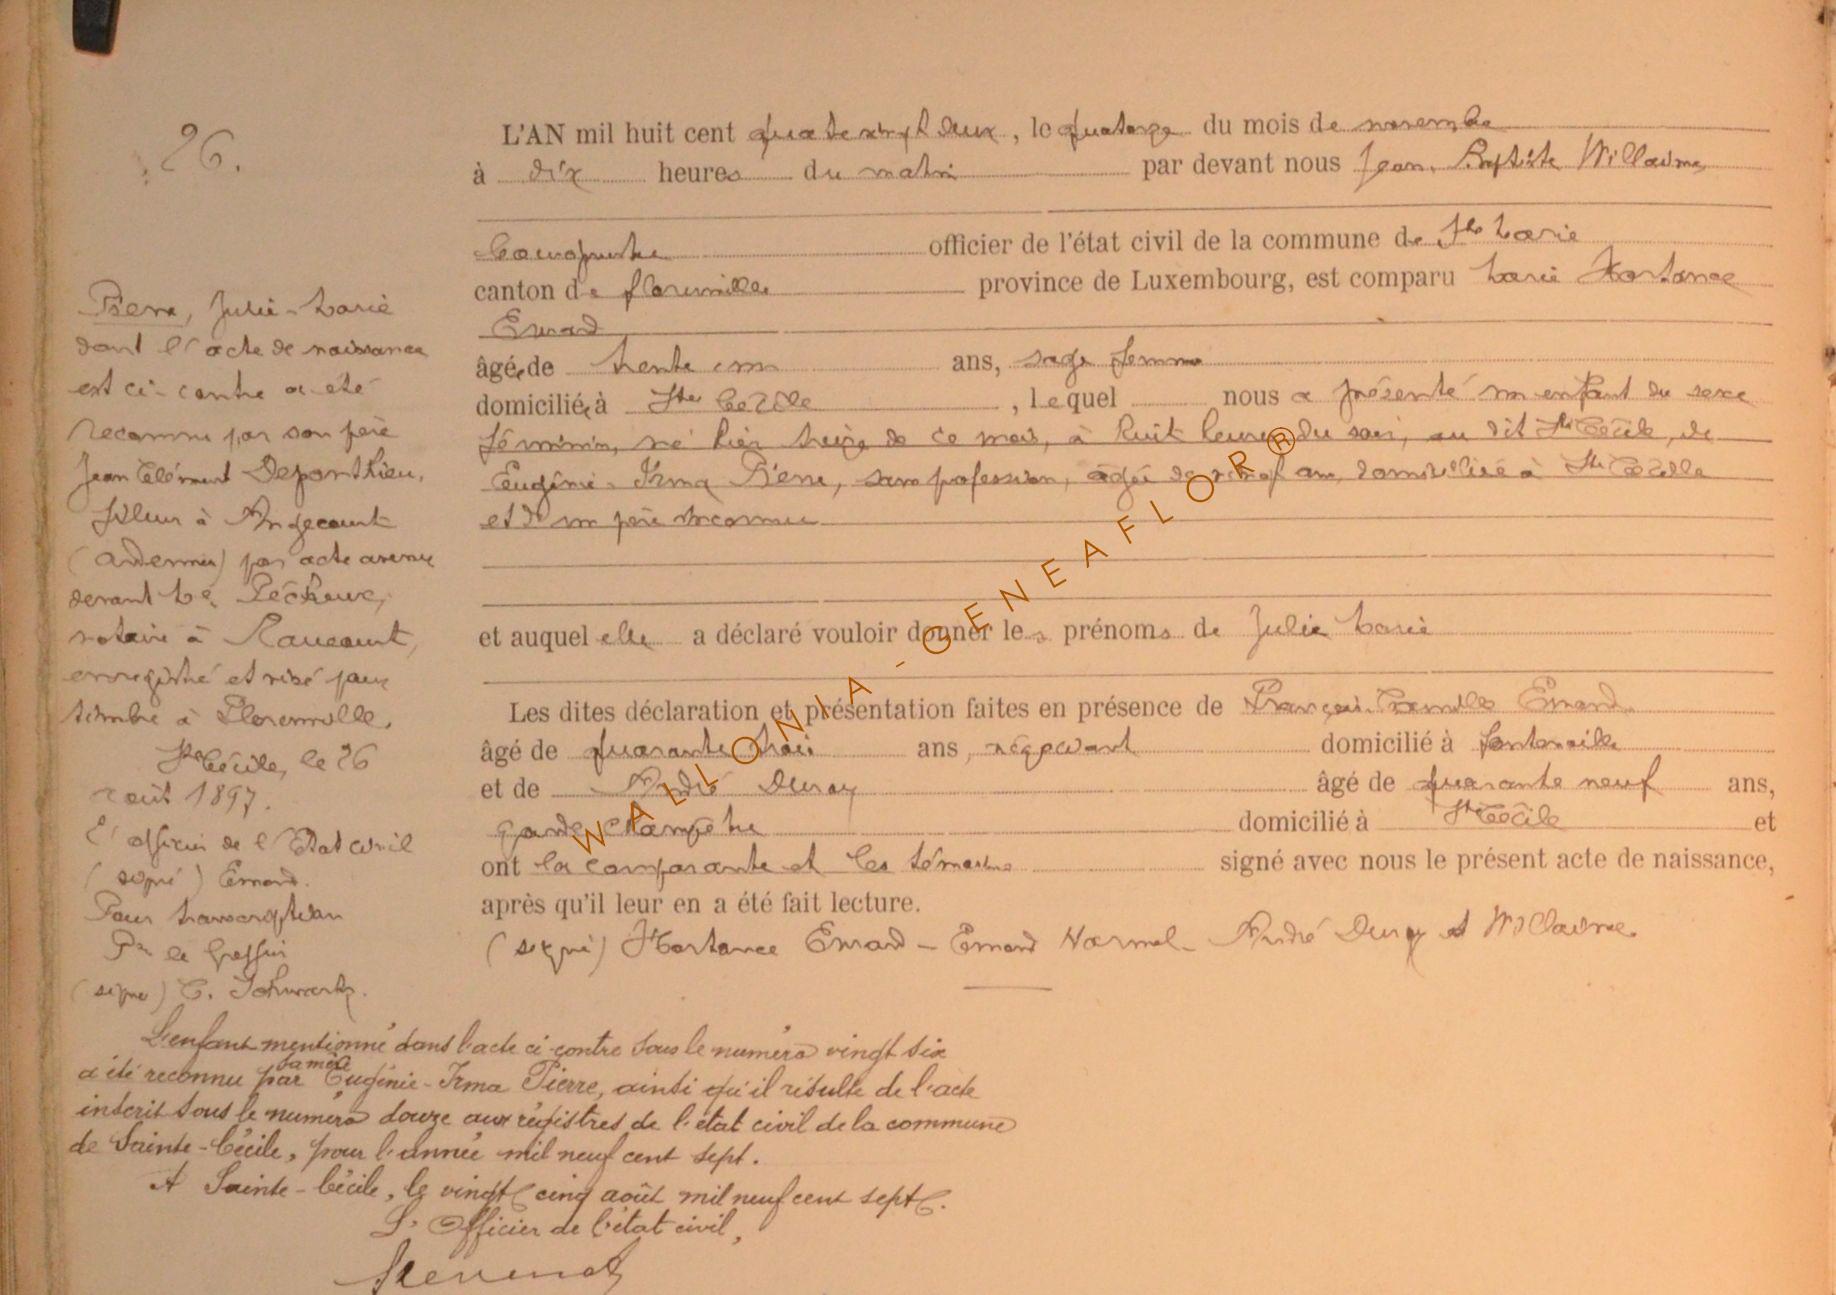 26.
L'AN mil huit cent quatre vingt deux, le quatorze du mois de novembre
à dix heures du matin par devant nous Jean Baptiste Willaime
Bourgmestre officier de l'état civil de la commune de Ste Marie
canton de florenville province de Luxembourg, est comparu Marie Hortance
Emard
âgée de trente ans, sage femme
domiciliée à Ste Cécile, lequel nous a présenté un enfant du sexe
féminin, né hier treize de ce mois, à huit heures du soir, au dit Ste Cécile, de
Eugénie-Irma Pierre, sans profession, âgée de ans, domiciliée à Ste Cécile
et de un père inconnu
et auquel elle a déclaré vouloir donner les prénoms de Julie Marie
Les dites déclaration et présentation faites en présence de François Camille Emard
âgé de quarante trois ans, négociant domicilié à fontenoille
et de André Duray âgé de quarante neuf ans,
garde champêtre domicilié à Ste Cécile et
ont la comparante et les témoins signé avec nous le présent acte de naissance,
après qu'il leur en a été fait lecture.
(signé) Hortance Emard - Emard Normal - André Duray et Willaime
Pierre, Julie-Marie
dont l'acte de naissance
est ci-contre a été
reconnu par son père
Jean Clément Deponthieu,
fileur à Angecourt
(ardennes) par acte avenu
devant Me. Pécheux,
notaire à Raucourt,
enregistré et visé pour
timbre à Florenville.
Ste Cécile, le 26
août 1897.
L'officier de l'Etat civil
(signé) Emard.
Pour transcription
Pr le Greffier
(signé) C. Schwartz.
L'enfant mentionné dans l'acte ci-contre sous le numéro vingt six
a été reconnu par sa mère Eugénie-Irma Pierre, ainsi qu'il résulte de l'acte
inscrit sous le numéro douze aux registres de l'état civil de la commune
de Sainte-Cécile, pour l'année mil neuf cent sept.
A Sainte-Cécile, le vingt cinq août mil neuf cent sept.
L'Officier de l'état civil,
WALLONIA-GENEAFLOR®